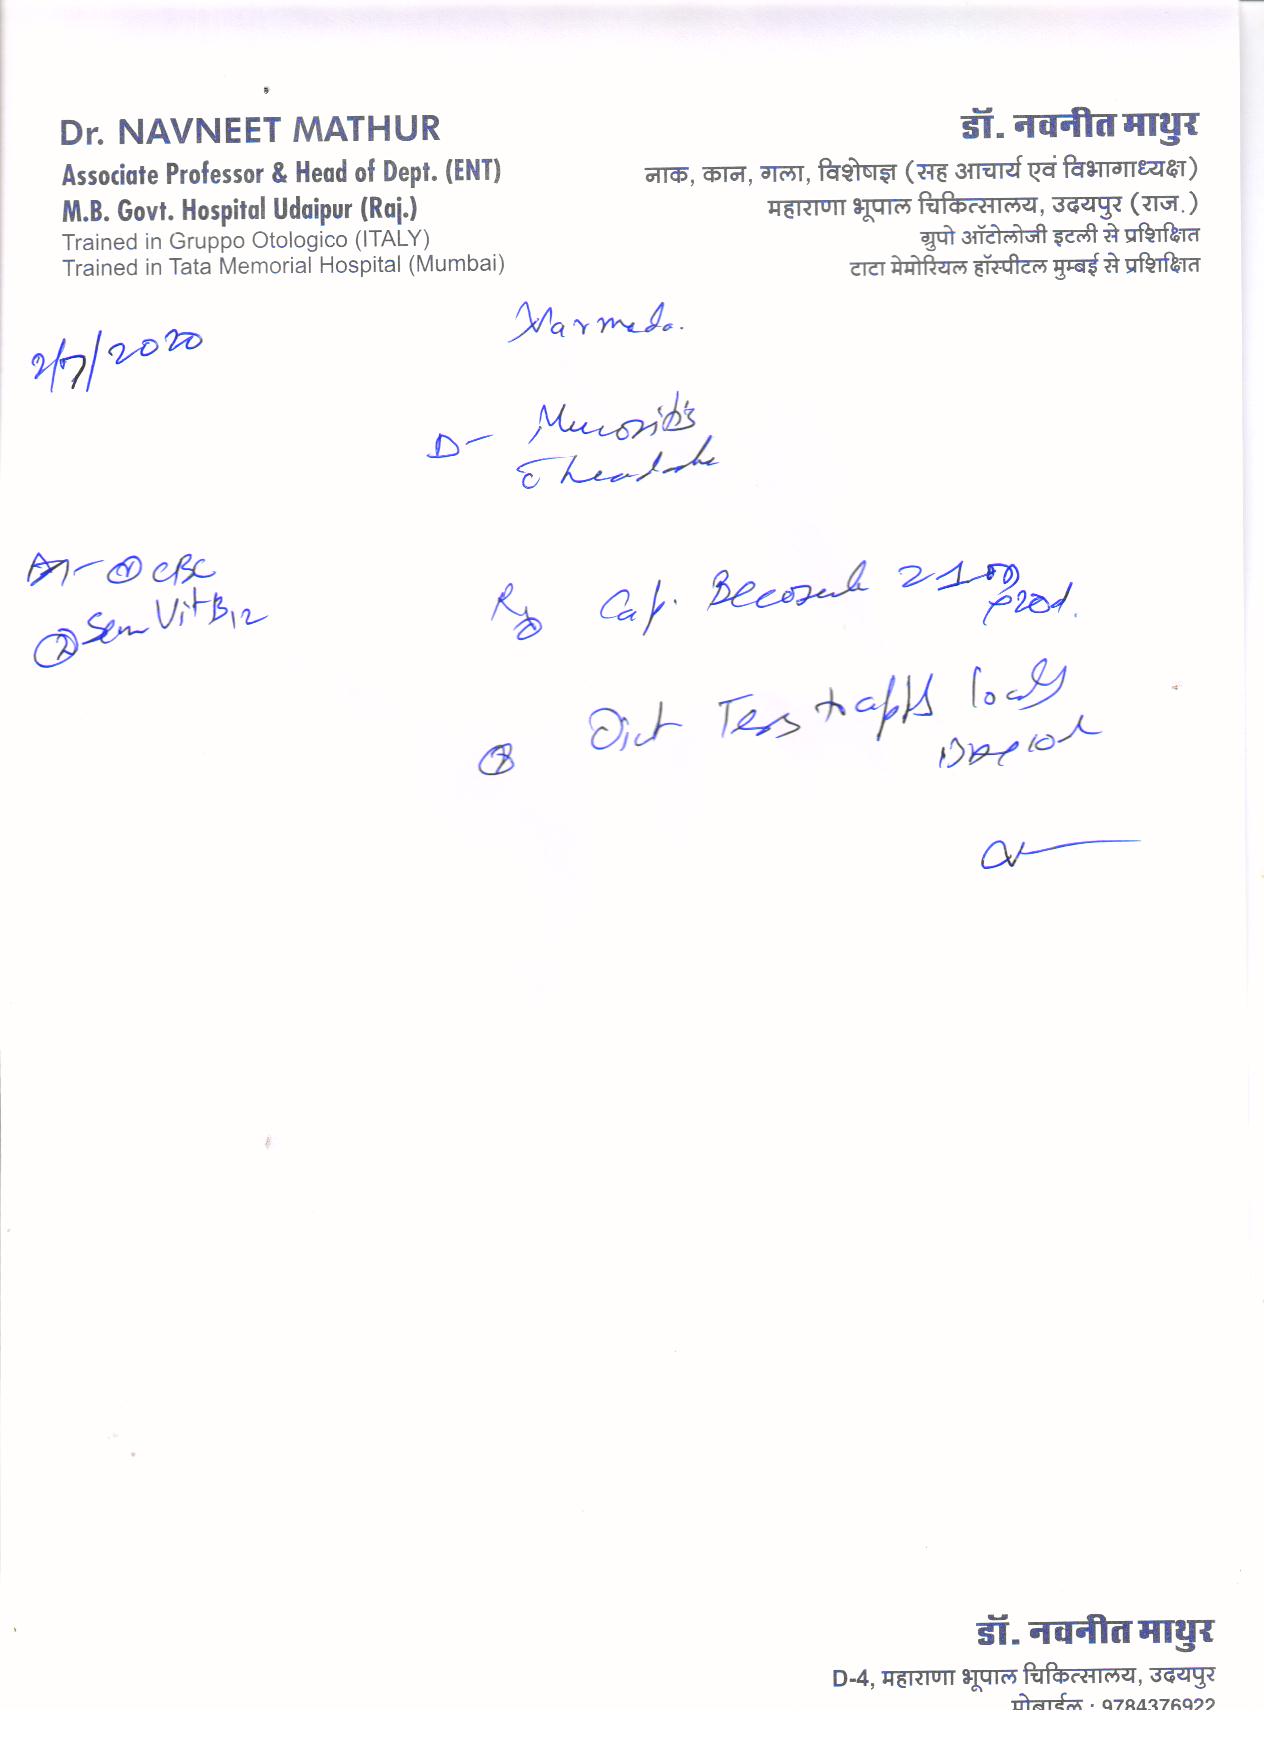 Dr. NAVNEET MATHUR
Associate Professor & Head of Dept. (ENT)
M.B. Govt. Hospital Udaipur (Raj.)
Trained in Gruppo Otologico (ITALY)
Trained in Tata Memorial Hospital (Mumbai)
डॉ. नवनीत माथुर
नाक, कान, गला, विशेषज्ञ (सह आचार्य एवं विभागाध्यक्ष)
महाराणा भूपाल चिकित्सालय, उदयपुर (राज.)
ग्रुपो ऑटोलोजी इटली से प्रशिक्षित
टाटा मेमोरियल हॉस्पीटल मुम्बई से प्रशिक्षित
2/7/2020
Narmada.
D- Mucositis
c headache
① CBC
② Serum Vit B12
Rx Cap. Becosule
20d.
② Oint Tess to apply locally
10d
डॉ. नवनीत माथुर
D-4, महाराणा भूपाल चिकित्सालय, उदयपुर
मोबाईल : 9784376922